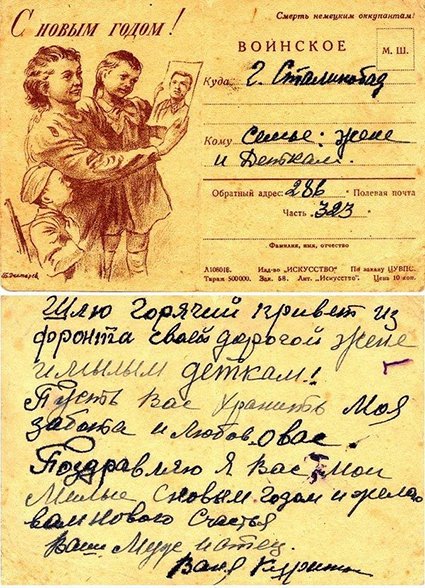 С новым годом!
Смерть немецким оккупантам!
ВОИНСКОЕ
М. Ш.
Куда г. Сталинабад
Кому семье: жене
и Деткам.
Обратный адрес: 286 Полевая почта
Часть 323
Фамилия, имя, отчество
А106018. Изд-во „ИСКУССТВО" По заказу ЦУВПС.
Тираж 500000. Зак. 58. Лит. „Искусство". Цена 10 коп.
Шлю горячий привет из
фронта своей дорогой жене
и милым деткам!
Пусть Вас хранить моя
забота и любов о вас.
Поздравляю я Вас мои
милые с новым годом и желаю
вам нового счастья
Ваш Муж и отец
Ваня